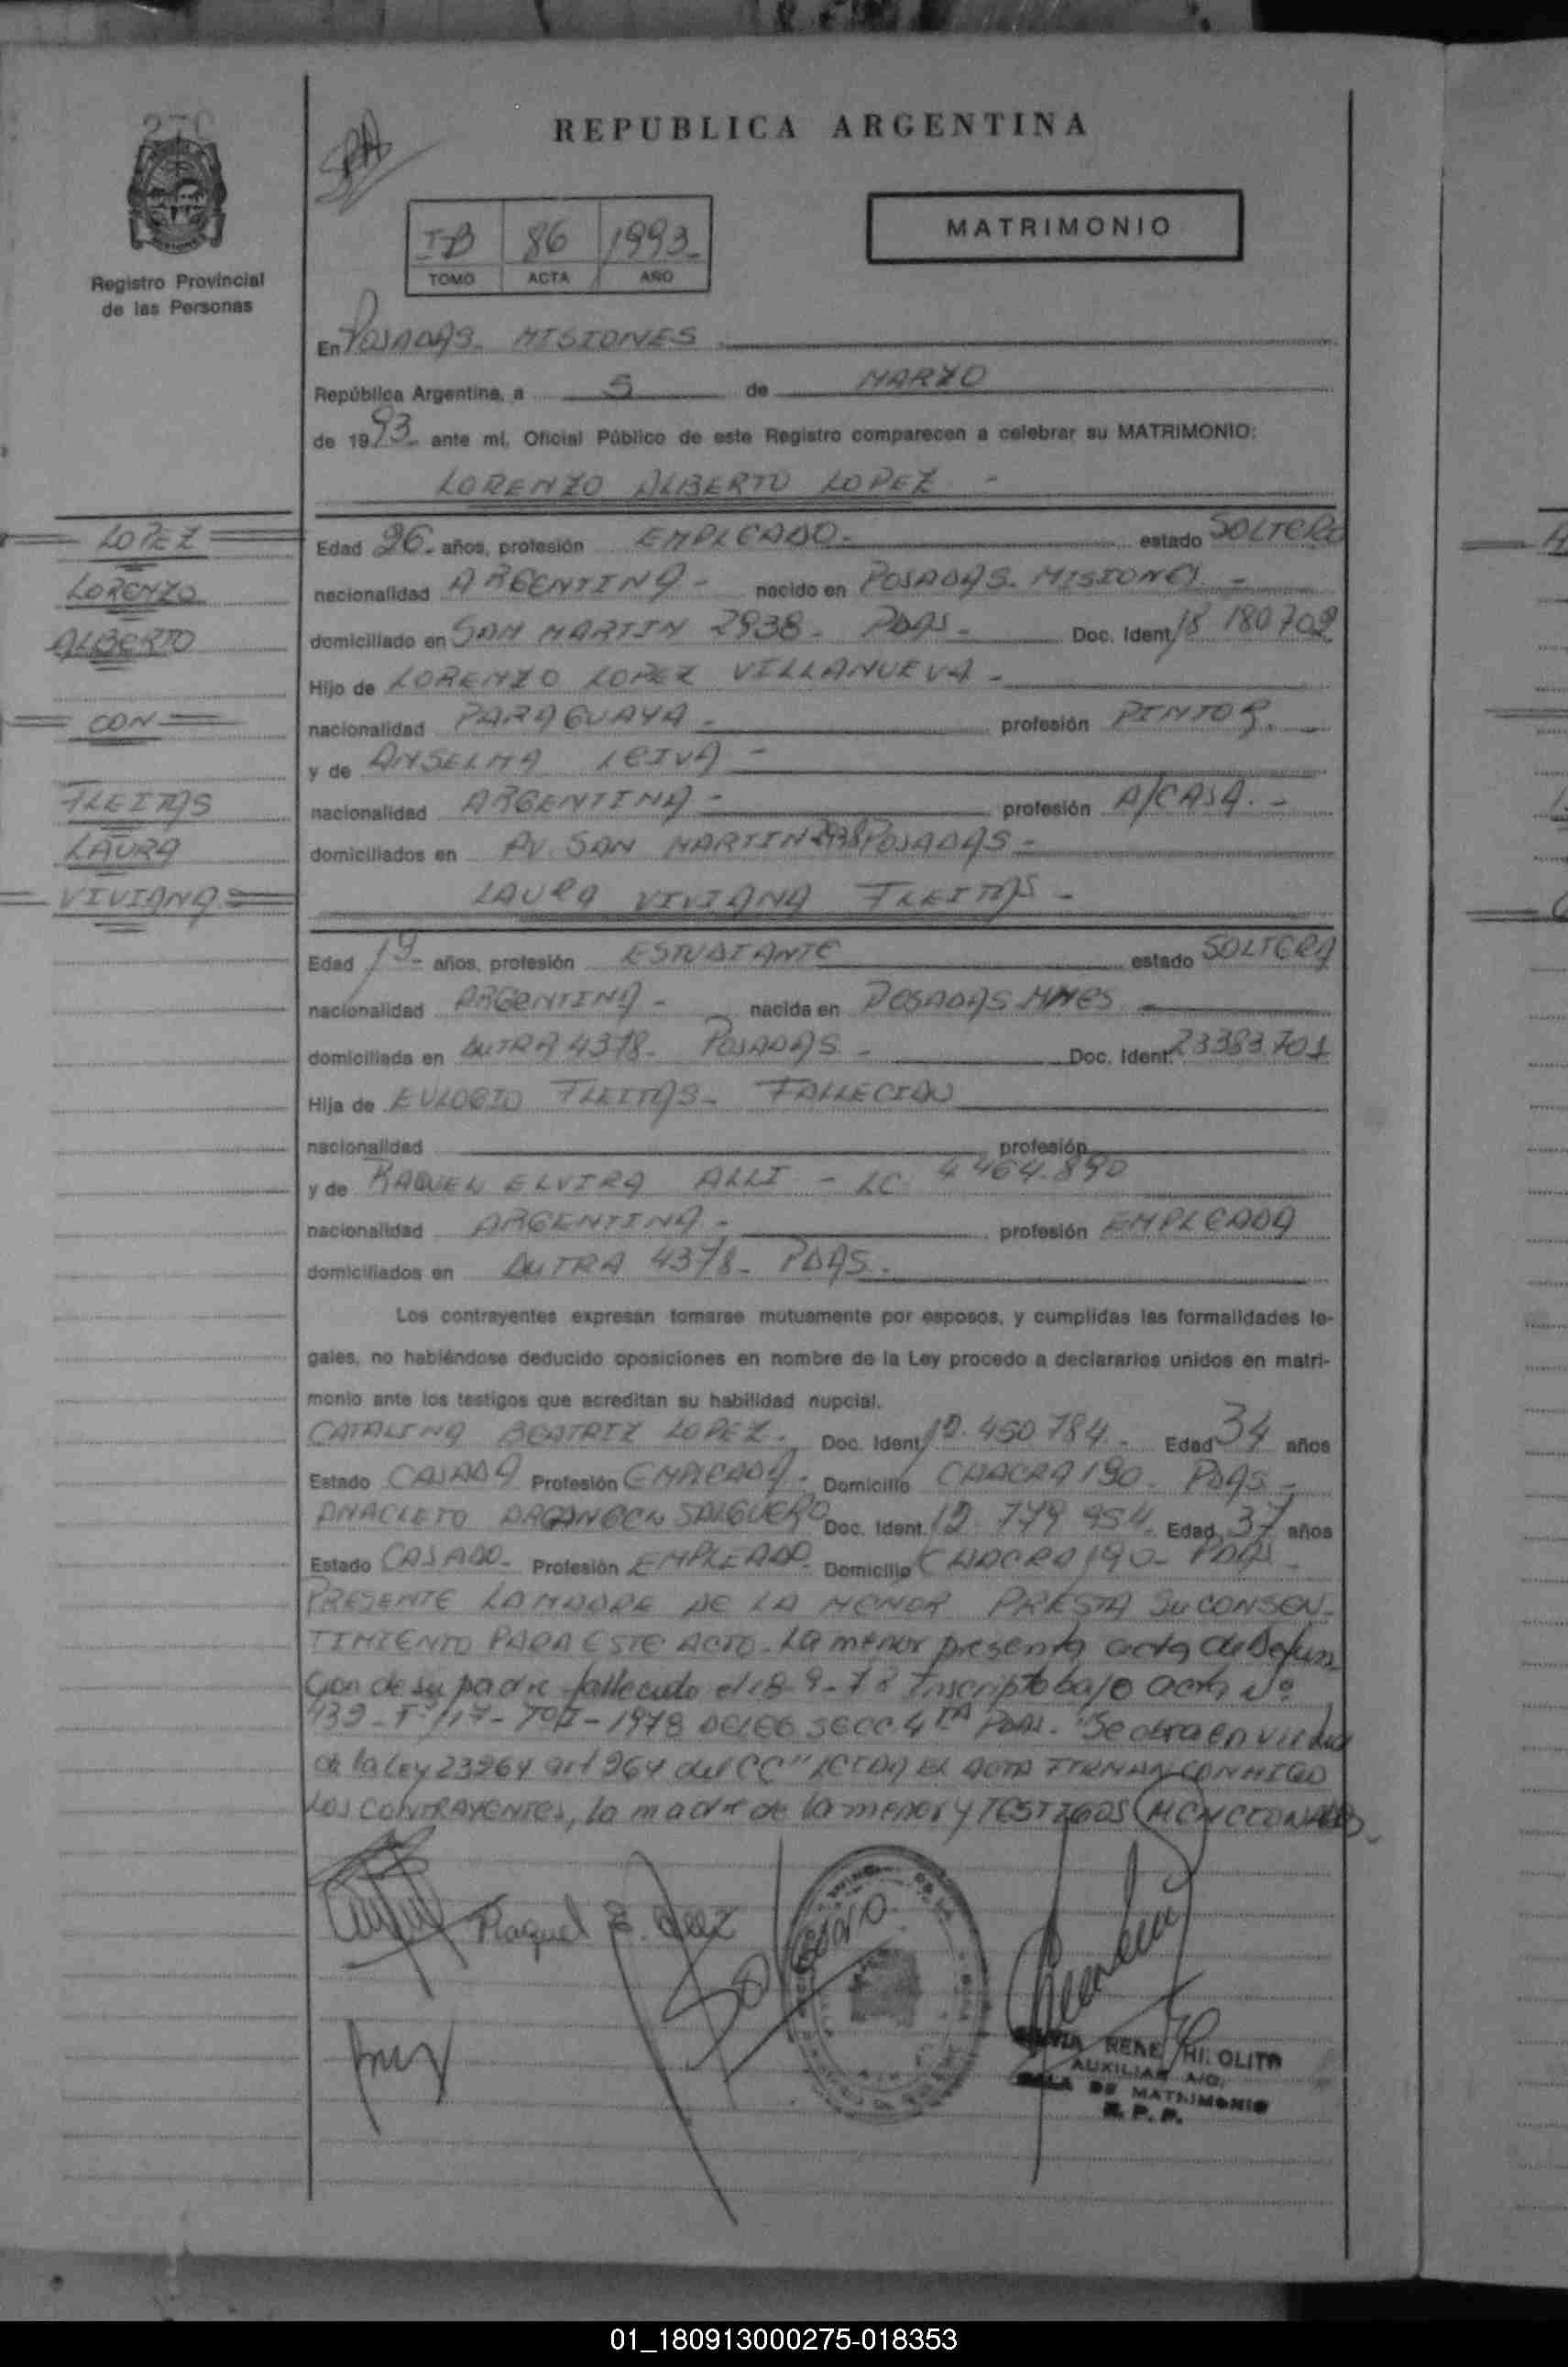 REPUBLICA ARGENTINA
MATRIMONIO
I-B 86 1993
TOMO ACTA AÑO
Registro Provincial
de las Personas
En POSADAS - MISIONES
República Argentina, a 5 de MARZO
de 1993 ante mí, Oficial Público de este Registro comparecen a celebrar su MATRIMONIO:
LORENZO ALBERTO LOPEZ -
LOPEZ
LORENZO
ALBERTO
CON
FLEITAS
LAURA
VIVIANA
Edad 26 - años, profesión EMPLEADO - estado SOLTERO
nacionalidad ARGENTINA - nacido en POSADAS - MISIONES -
domiciliado en SAN MARTIN 2938 - PDAS - Doc. Ident. 18 180 702
Hijo de LORENZO LOPEZ VILLANUEVA -
nacionalidad PARAGUAYA - profesión PINTOR -
y de ANSELMA LEIVA -
nacionalidad ARGENTINA - profesión A/CASA. -
domiciliados en AV. SAN MARTIN 2938 POSADAS -
LAURA VIVIANA FLEITAS -
Edad 19 - años, profesión ESTUDIANTE estado SOLTERA
nacionalidad ARGENTINA - nacida en POSADAS MNES
domiciliada en DUTRA 4378 - POSADAS - Doc. Ident. 23383701
Hija de EULOGIO FLEITAS - FALLECIDO
nacionalidad profesión
y de RAQUEL ELVIRA ALLI - LC 4 464.890
nacionalidad ARGENTINA - profesión EMPLEADA
domiciliados en DUTRA 4378 - PDAS.
Los contrayentes expresan tomarse mutuamente por esposos, y cumplidas las formalidades le-
gales, no habiéndose deducido oposiciones en nombre de la Ley procedo a declararlos unidos en matri-
monio ante los testigos que acreditan su habilidad nupcial.
CATALINA BEATRIZ LOPEZ. Doc. Ident. 12.450 784 - Edad 34 años
Estado CASADA Profesión EMPLEADA. Domicilio CHACRA 190 - PDAS -
ANACLETO SALGUERO Doc. Ident. 12.779 954 Edad 37 años
Estado CASADO - Profesión EMPLEADO Domicilio CHACRA 190 - PDAS -
PRESENTE LA MADRE DE LA MENOR PRESTA SU CONSEN-
TIMIENTO PARA ESTE ACTO - La menor presenta acta de Defun-
cion de su padre fallecido el 8-9-78 Inscripto bajo acta Nº
439 - Fº 117 - Tº I - 1978 DELEG SECC. 4TA PDAS. "Se obra en virtud
de la Ley 23264 art 264 del CC" LEIDA EL ACTA FIRMAN CONMIGO
LOS CONTRAYENTES, la madre de la menor y TESTIGOS MENCIONADOS
Raquel E.
RENE
AUXILIAR
SALA DE MATRIMONIO
R. P. P.
01_180913000275-018353